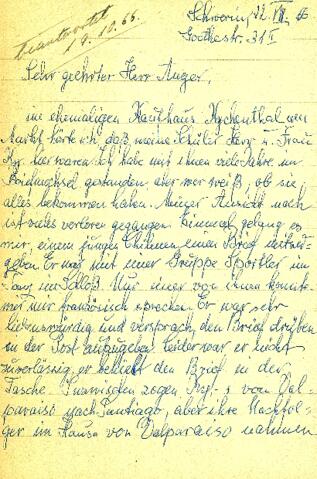 beantwortet
19.10.66.
Schwerin, 12. VII. 66
Goethestr. 31 I
Sehr geehrter Herr Anger,
im ehemaligen Kaufhaus Kychenthal am
Markt hörte ich, daß meine Schüler Herr u. Frau
Ky. hier waren. Ich habe mit ihnen viele Jahre im
Briefwechsel gestanden, aber wer weiß, ob sie
alles bekommen haben. Meiner Ansicht nach
ist vieles verloren gegangen. Einmal gelang es
mir, einem jungen Chilenen einen Brief mitzu-
geben. Er war mit einer Gruppe Sportler im
im Schloß. Nur einer von ihnen konnte
mir französisch sprechen. Er war sehr
liebenswürdig und versprach, den Brief drüben
in der Post aufzugeben. Leider war er nicht
zuverlässig, er behielt den Brief in der
Tasche. Inzwischen zogen Ky. s von Val-
paraiso nach Santiago, aber ihre Nachfol-
ger im Hause von Valparaiso nahmen